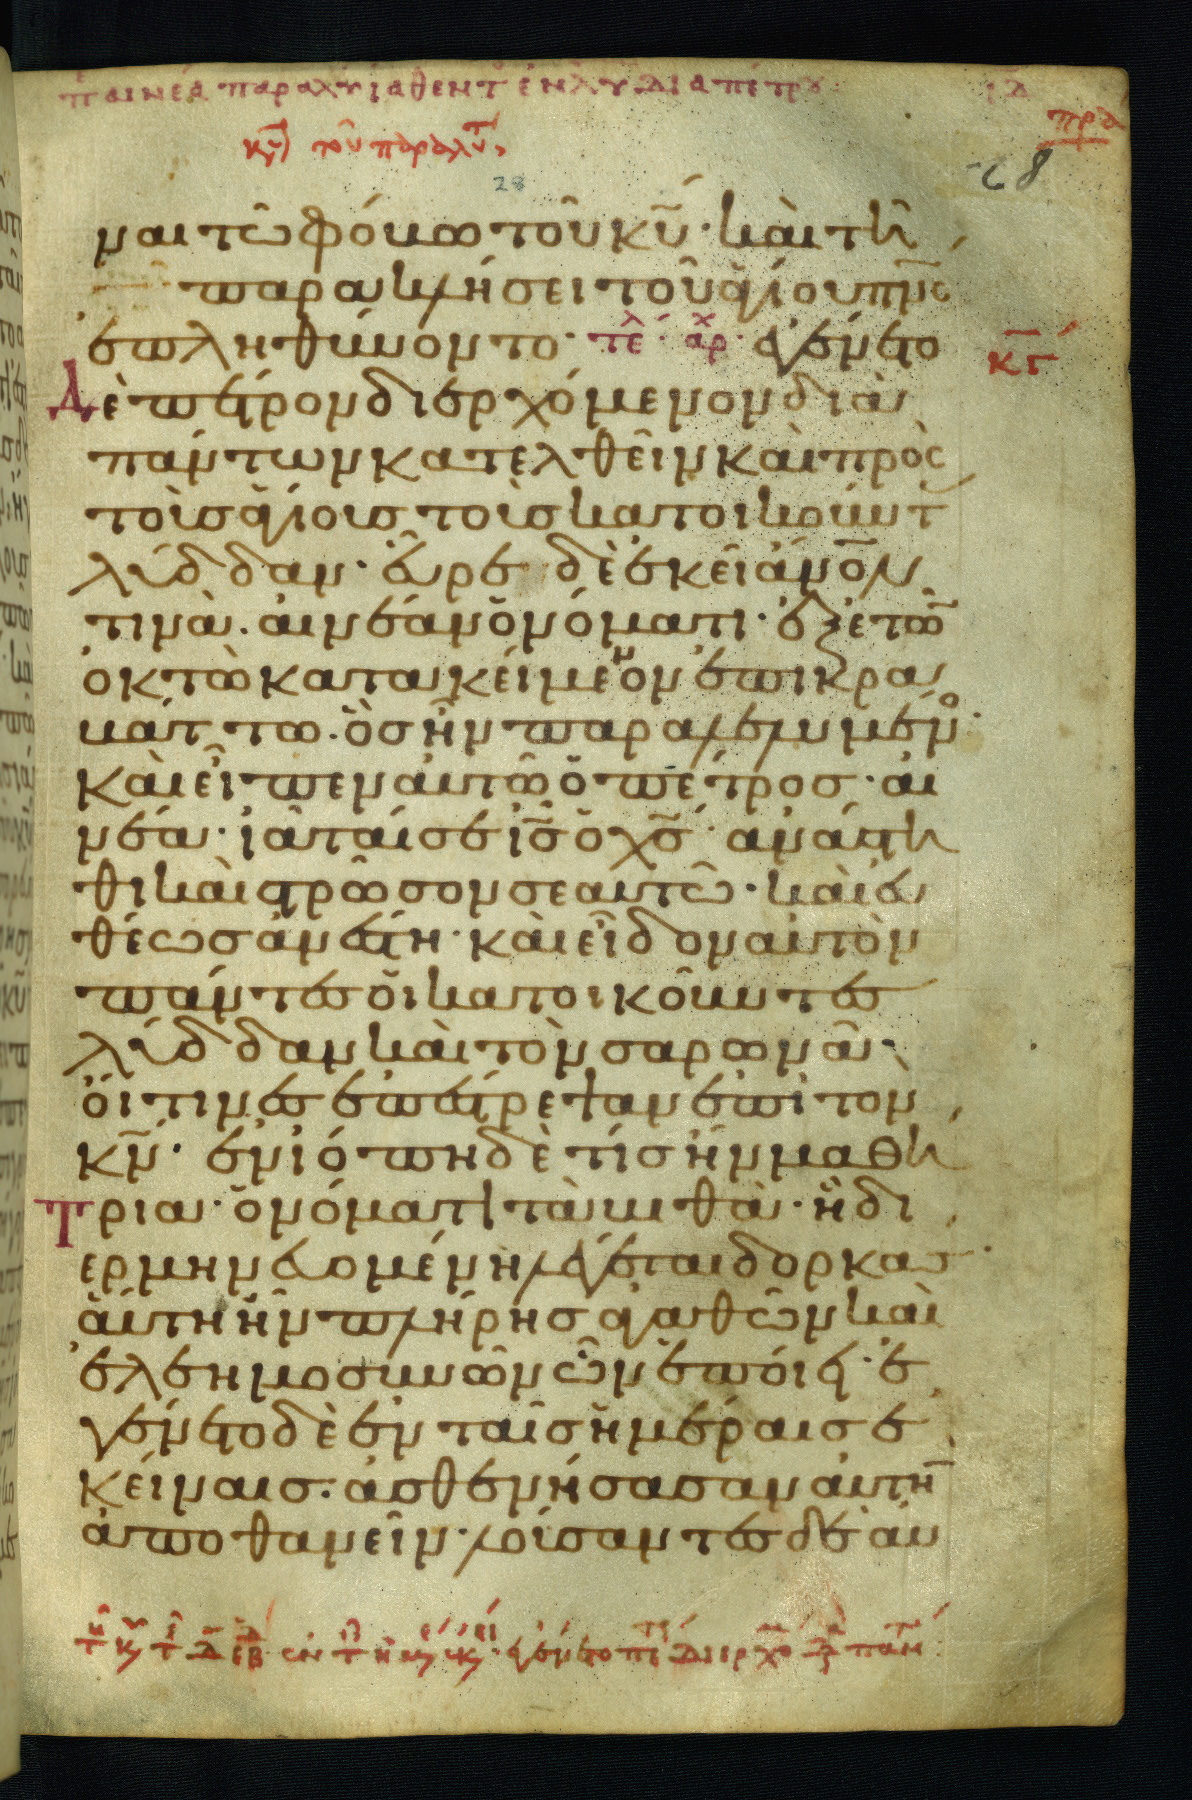 αἰνέα παραλυ ἰαθεντ ἐν λυδδ δια πέτρου ιδ
πρα
κυ του παραλυτ
28
68
μαι τῶ φόβω τοῦ κυ̅· καὶ τῆ
παρακλήσει τοῦ ἁγίου πν̅ς
ἐπληθύνοντο· τε αρχ ἐγένετο
κγ
δὲ πέτρον διερχόμενον διὰ
πάντων κατελθεῖν καὶ πρὸς
τοὺς ἁγίους τοὺς κατοικοῦντ
λύδδαν· εὗρε δὲ ἐκεῖ ἄνο̅ν
τινὰ. αἰνέαν ὀνόματι· ἐξ ἐτῶ
ὀκτὼ κατακείμενον ἐπὶ κρα
βάττω. ὃς ἦν παραλελυμένο·
καὶ εἶπεν αὐτῶ ὁ πέτρος· αἰ
νέα· ἰᾶταί σε ις̅ ὁ χς̅· ἀνάστη
θι καὶ στρῶσον σεαυτῶ· καὶ εὐ
θέως ἀνέστη· καὶ εἶδον αὐτὸν
πάντες οἱ κατοικοῦντες
λύδδαν καὶ τὸν σαρωνᾶ·
οἵτινες ἐπέστρεψαν ἐπὶ τον
κν̅· ἐν ἰόππη δὲ τίς ἦν μαθή
τρια· ὀνόματι ταβιθὰ· ἣ δι
ερμηνευομένη λέγεται δορκας·
αὕτη ἦν πλήρης ἀγαθῶν καὶ
ἐλεημοσυνῶν ὧν ἐποίει· ἐ
γένετο δὲ ἐν ταῖς ἡμέραις ἐ
κείναις· ἀσθενήσασαν αὐτὴ̅
ἀποθανεῖν· λούσαντες δὲ αὐ
ἐγένετο πε διερχο δ παν